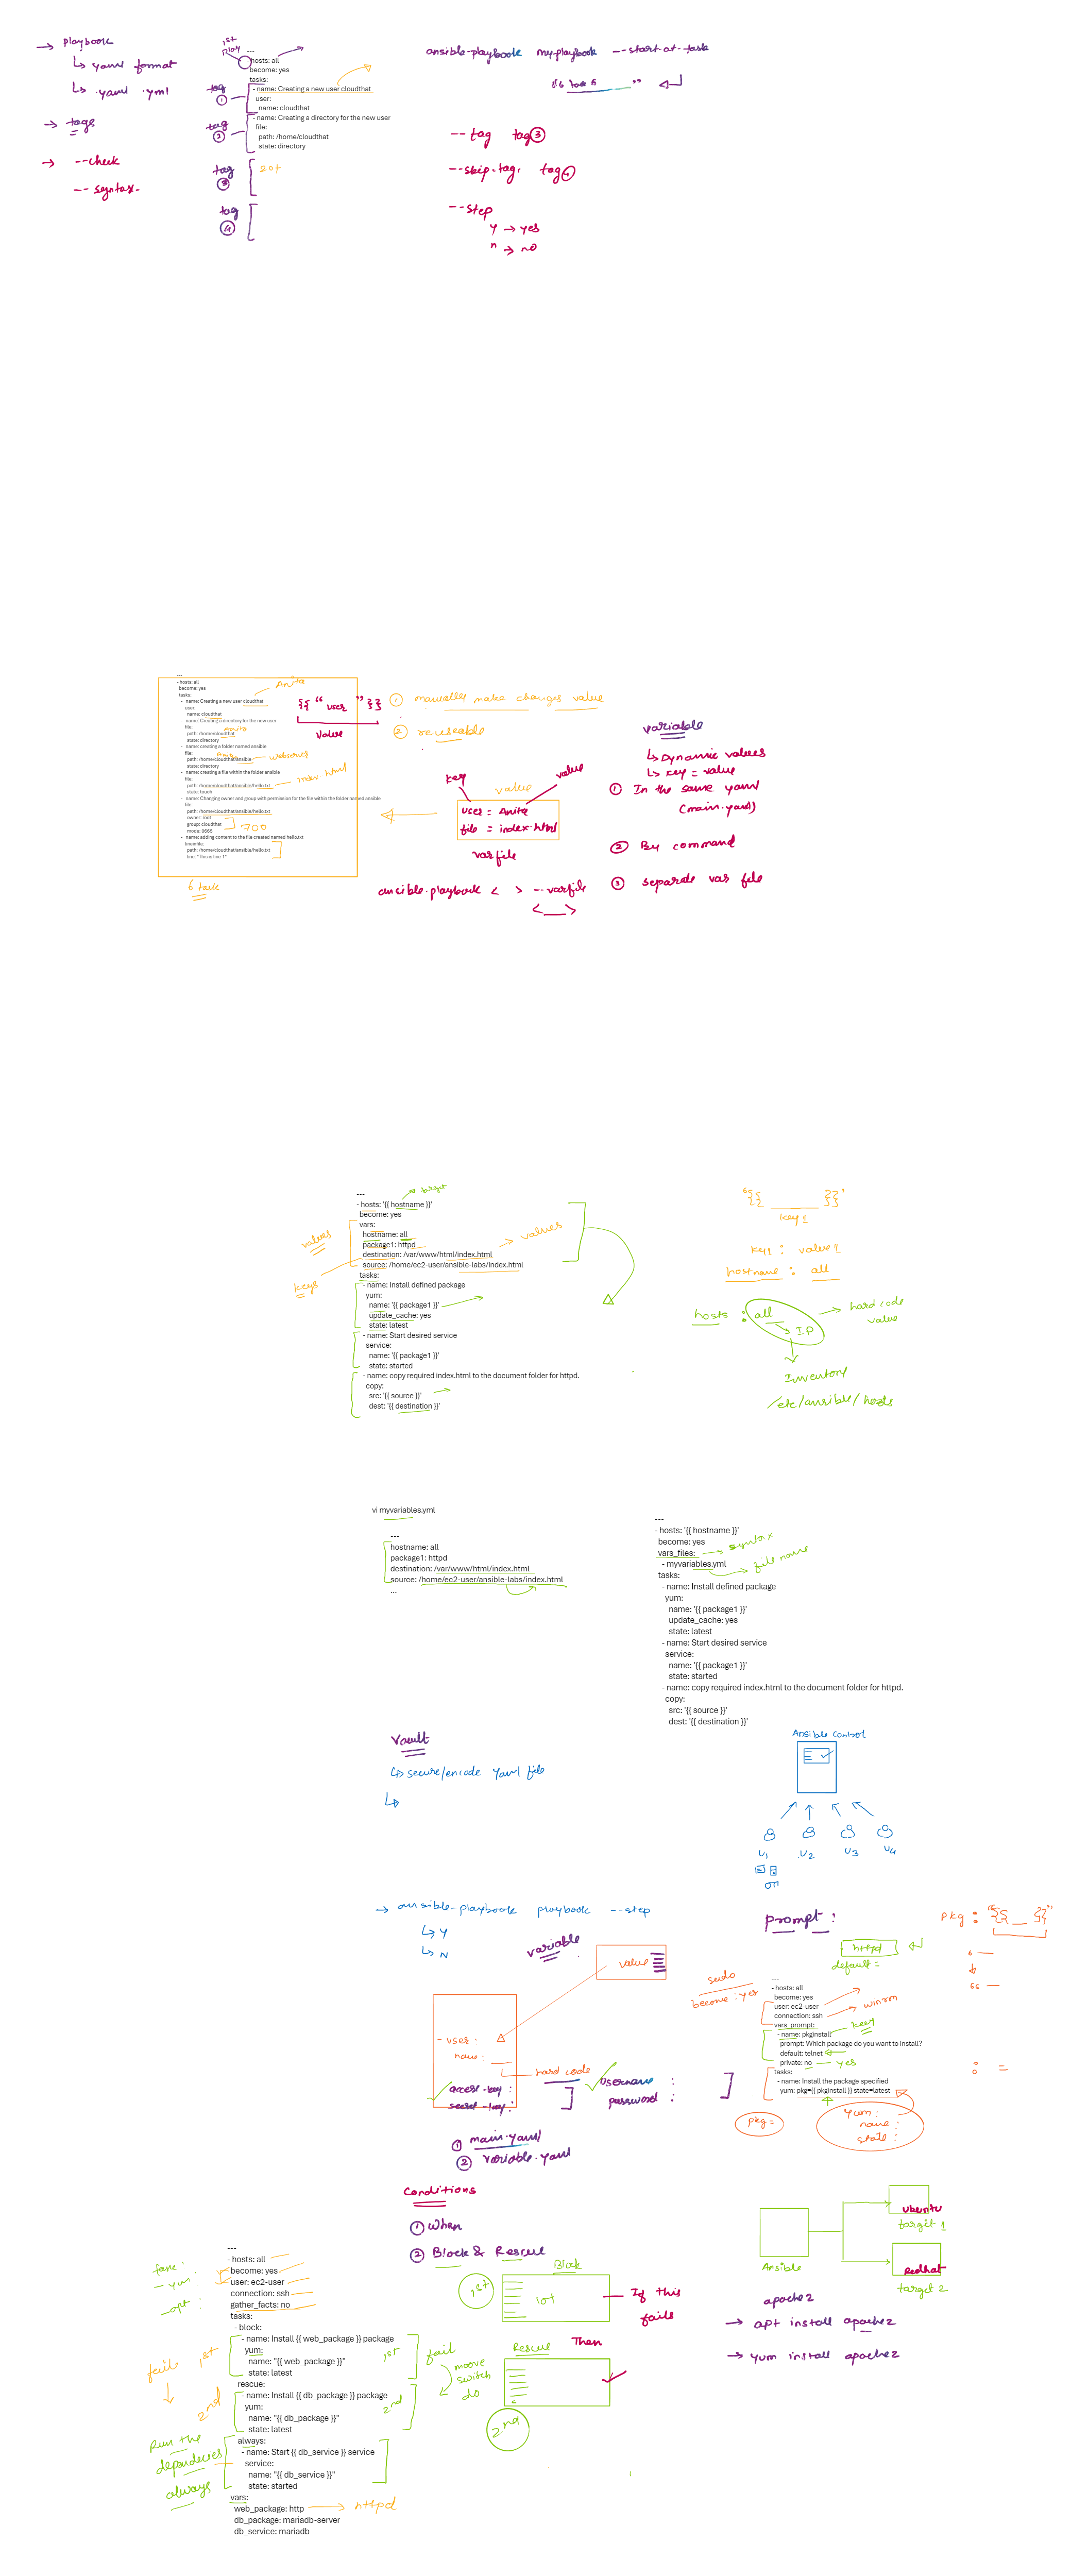 → playbook
↳ yaml format
↳ .yaml .yml
→ tags
→ --check
-- syntax-
1st play
---
- hosts: all
become: yes
tasks:
- name: Creating a new user cloudthat
user:
name: cloudthat
- name: Creating a directory for the new user
file:
path: /home/cloudthat
state: directory
tag
①
tag
②
tag
③
20+
tag
④
ansible-playbook my-playbook --start-at-task
-- tag tag③
--skip-tag, tag④
--step
y → yes
n → no
---
- hosts: all
become: yes
tasks:
- name: Creating a new user cloudthat
user:
name: cloudthat
- name: Creating a directory for the new user
file:
path: /home/cloudthat
state: directory
- name: creating a folder named ansible
file:
path: /home/cloudthat/ansible
state: directory
- name: creating a file within the folder ansible
file:
path: /home/cloudthat/ansible/hello.txt
state: touch
- name: Changing owner and group with permission for the file within the folder named ansible
file:
path: /home/cloudthat/ansible/hello.txt
owner: root
group: cloudthat
mode: 0665
- name: adding content to the file created named hello.txt
lineinfile:
path: /home/cloudthat/ansible/hello.txt
line: "This is line 1"
Anita
Anita
webserver
index html
700
6 task
{{ "user" }}
value
① manually make changes value
② reuseable
key
value
value
user = Anita
file = index.html
varfile
ansible-playbook < > --varfile
< >
variable
↳ Dynamic values
↳ key = value
① In the same yaml
(main.yaml)
② By command
③ separate var file
---
- hosts: '{{ hostname }}'
become: yes
vars:
hostname: all
package1: httpd
destination: /var/www/html/index.html
source: /home/ec2-user/ansible-labs/index.html
tasks:
- name: Install defined package
yum:
name: '{{ package1 }}'
update_cache: yes
state: latest
- name: Start desired service
service:
name: '{{ package1 }}'
state: started
- name: copy required index.html to the document folder for httpd.
copy:
src: '{{ source }}'
dest: '{{ destination }}'
target
values
keys
→ values
"{{ }}"
key1
key1 : value1
hostname : all
hosts : all
→ IP
→ hard code
value
Inventory
/etc/ansible/hosts
vi myvariables.yml
---
hostname: all
package1: httpd
destination: /var/www/html/index.html
source: /home/ec2-user/ansible-labs/index.html
...
---
- hosts: '{{ hostname }}'
become: yes
vars_files:
- myvariables.yml
tasks:
- name: Install defined package
yum:
name: '{{ package1 }}'
update_cache: yes
state: latest
- name: Start desired service
service:
name: '{{ package1 }}'
state: started
- name: copy required index.html to the document folder for httpd.
copy:
src: '{{ source }}'
dest: '{{ destination }}'
→ syntax
→ file name
Vault
↳ secure/encode yaml file
Ansible Control
U1 U2 U3 U4
→ ansible-playbook playbook --step
↳ Y
↳ N
variable
value
- user :
name :
hard code
access-key :
secret-key :
username :
password :
① main.yaml
② variable.yaml
prompt :
pkg : "{{ }}"
httpd
default =
sudo
become : yes
---
- hosts: all
become: yes
user: ec2-user
connection: ssh
vars_prompt:
- name: pkginstall
prompt: Which package do you want to install?
default: telnet
private: no
tasks:
- name: Install the package specified
yum: pkg={{ pkginstall }} state=latest
→ winrm
key
yes
: =
pkg =
yum :
name :
state :
Conditions
① When
② Block & Rescue
Block
1st
10+
If this
fails
Rescue
Then
2nd
Ansible
Ubuntu
target 1
Redhat
target 2
apache2
→ apt install apache2
→ yum install apache2
---
- hosts: all
become: yes
user: ec2-user
connection: ssh
gather_facts: no
tasks:
- block:
- name: Install {{ web_package }} package
yum:
name: "{{ web_package }}"
state: latest
rescue:
- name: Install {{ db_package }} package
yum:
name: "{{ db_package }}"
state: latest
always:
- name: Start {{ db_service }} service
service:
name: "{{ db_service }}"
state: started
vars:
web_package: http
db_package: mariadb-server
db_service: mariadb
- yum :
fails 1st
2nd
1st
fail
moove
switch
do
2nd
Run the
always
→ httpd